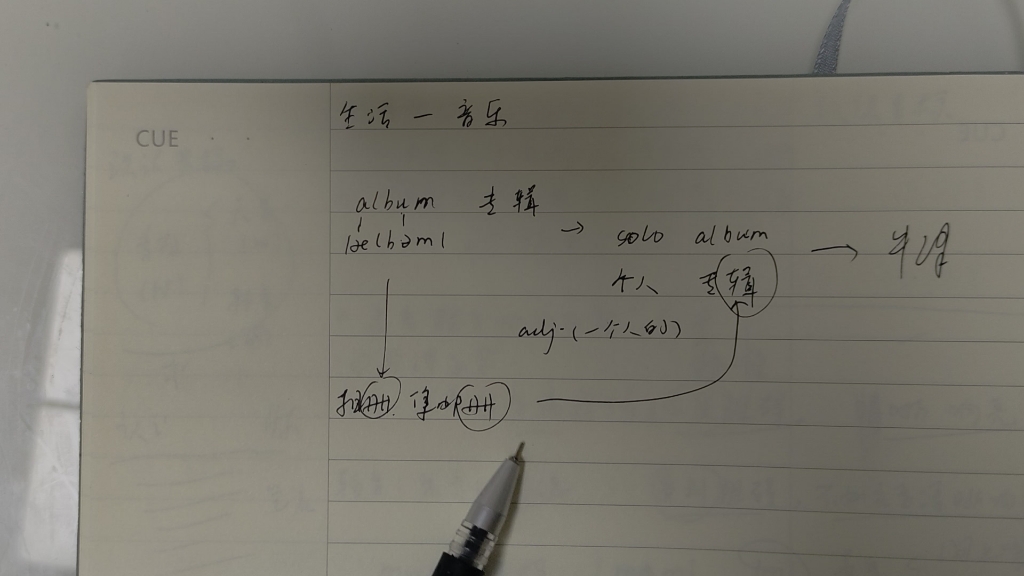 生活 — 音乐
CUE
album 专辑
|ælbəm| → solo album →
个人 专辑
adj.(一个人的)
册 集邮册